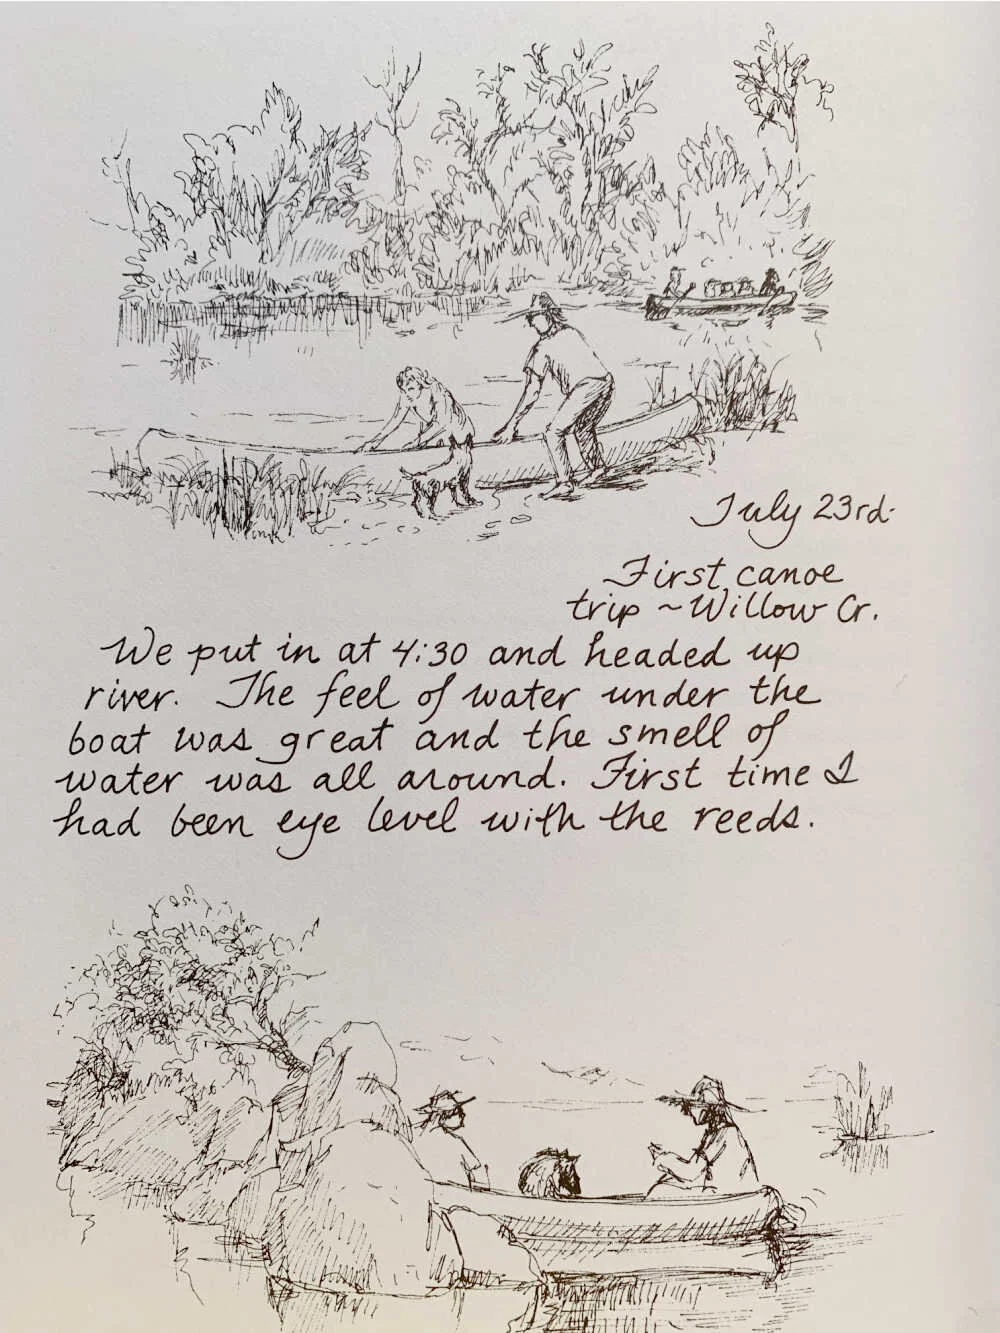 July 23rd.
First canoe
trip ~ Willow Cr.
We put in at 4:30 and headed up
river. The feel of water under the
boat was great and the smell of
water was all around. First time I
had been eye level with the reeds.